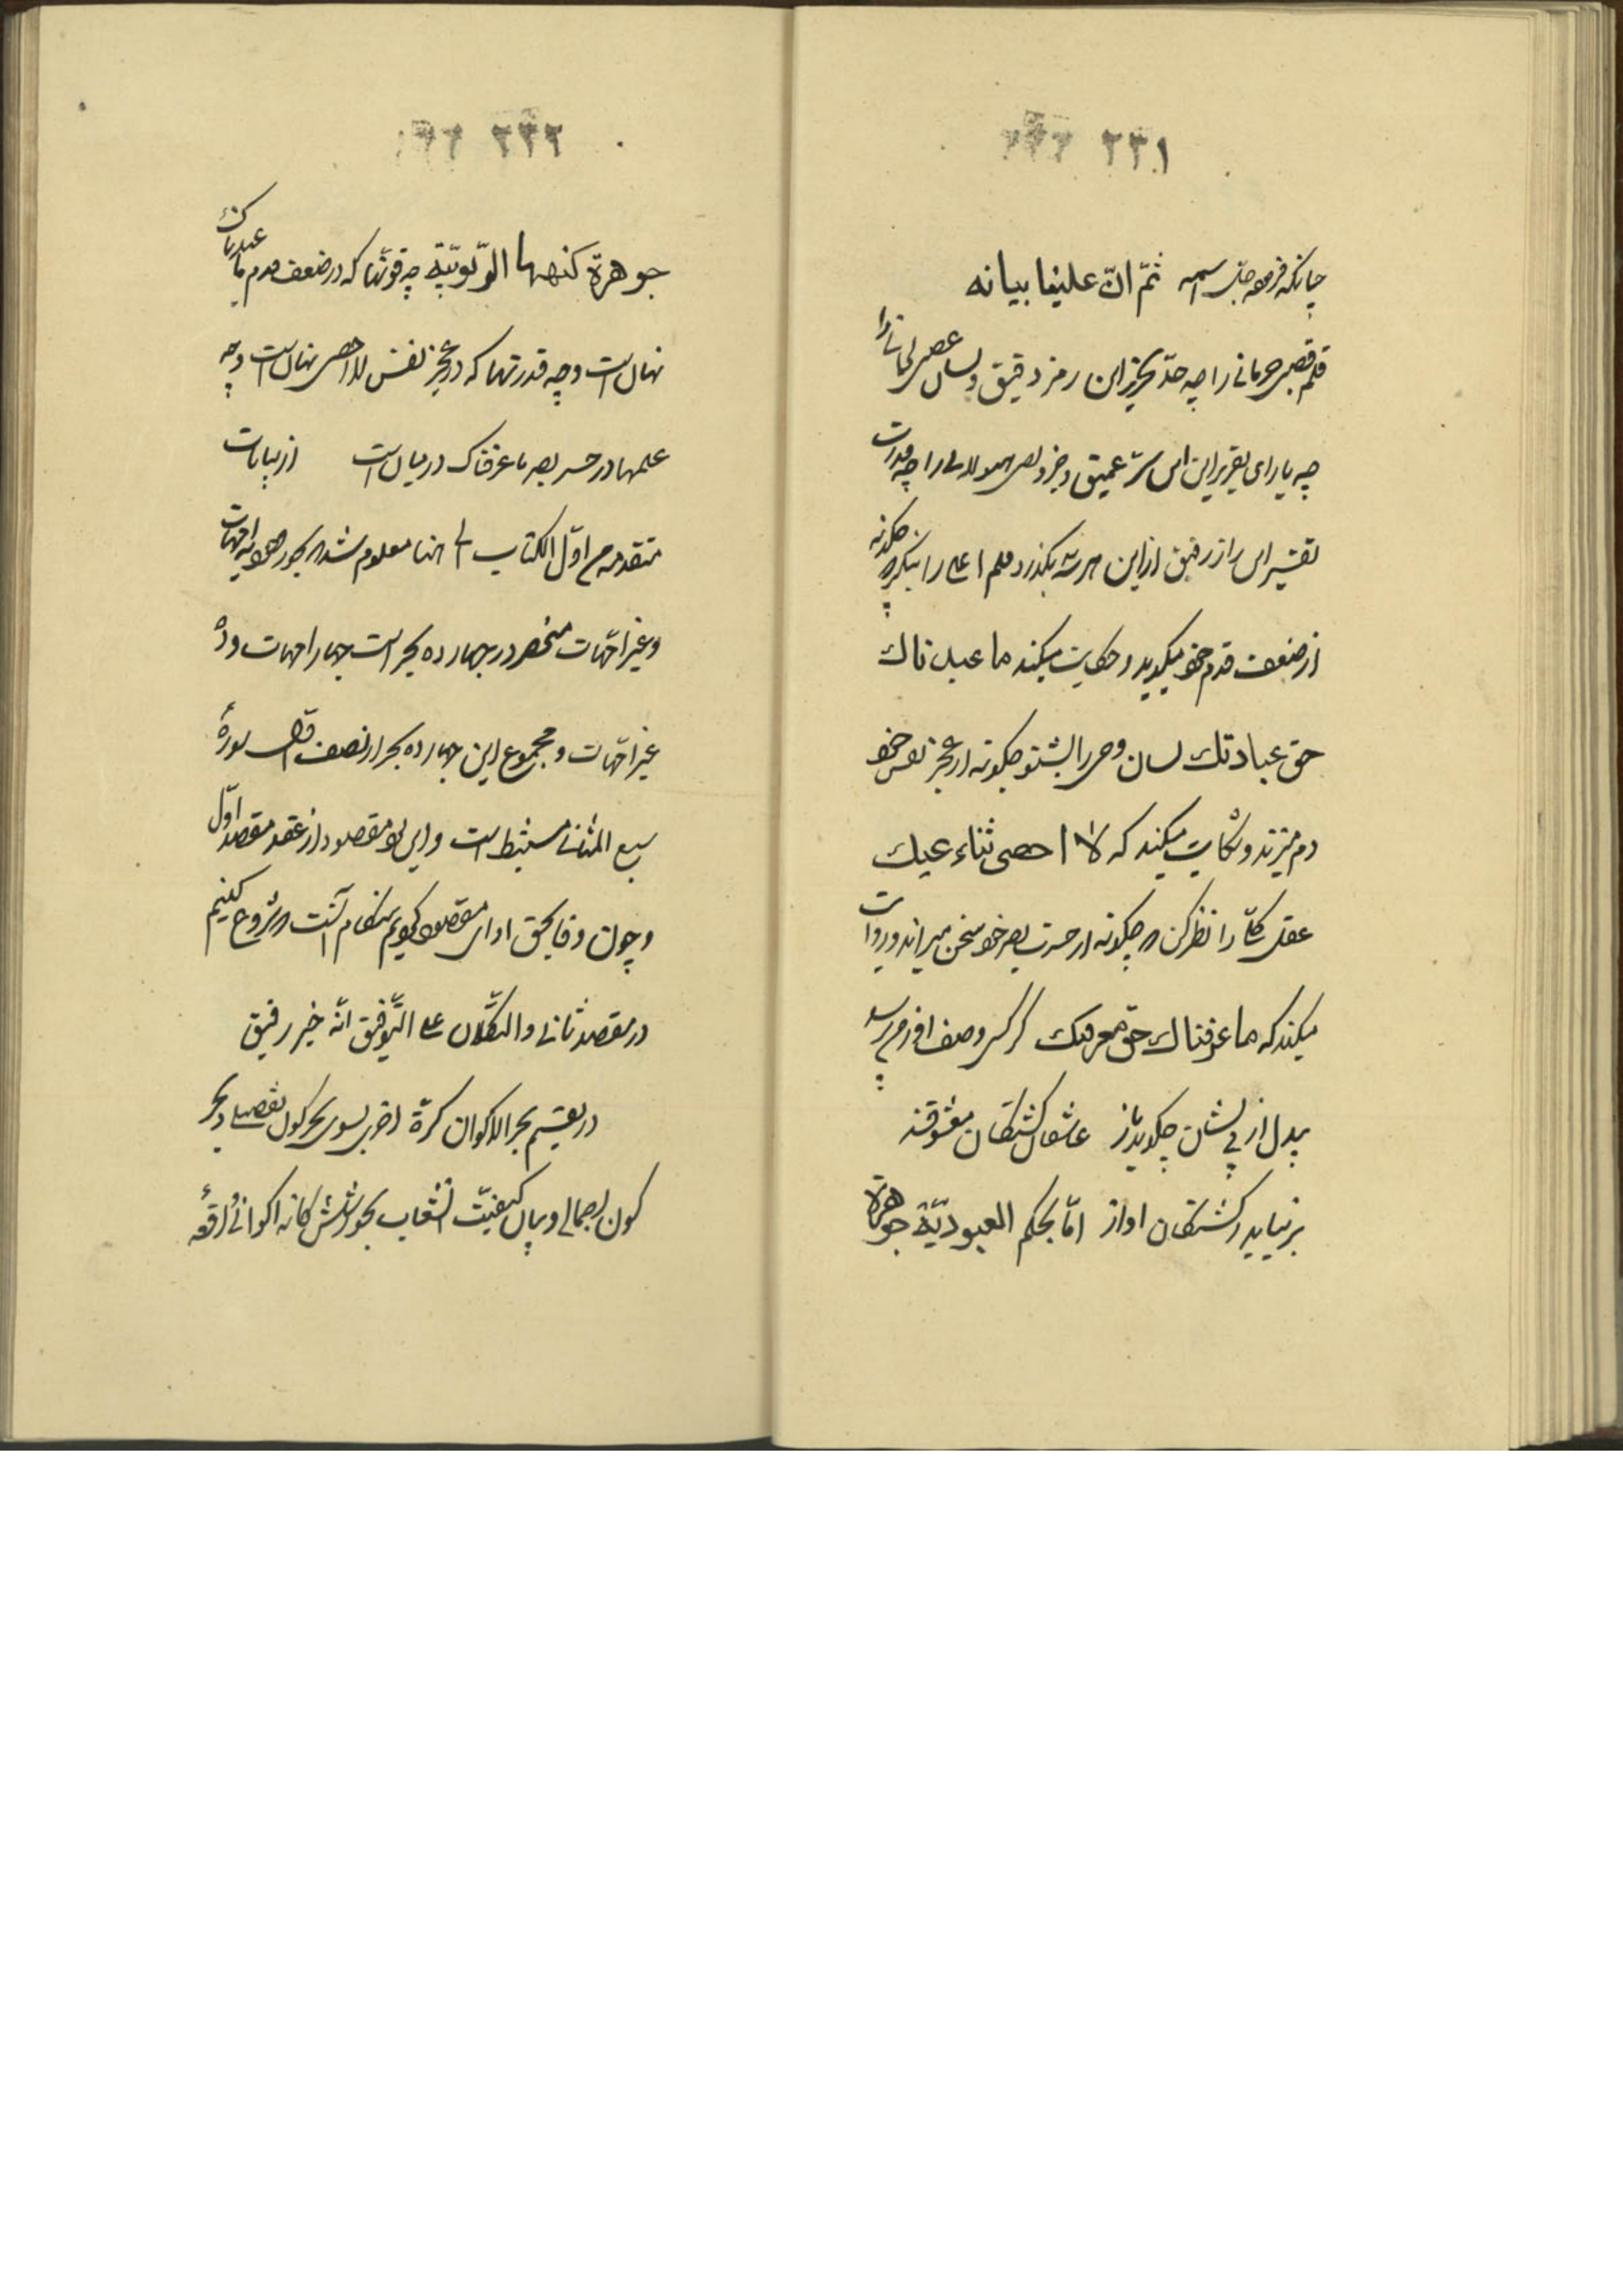 ۲۳۱
چنانکه فرمود جل اسمه ثمّ انّ علینا بیانه
قلم قصبی حرمانی را چه حدّ تحریر این رمز دقیق و لسان عصبی
چه یارای تقریر این سرّ عمیق را چه قدرت
تفسیر این راز رفیق از این مرتبه بگذر و قلم اعلی را بنگر که چگونه
از ضعف قدم خود میگوید و حکایت میکند ما عبدناك
حق عبادتك لسان وحی را بشنو چگونه از عجز نفس خود
دم میزند و شکایت میکند که لا احصی ثناء علیك
عقل کلّ را نظر کن که چگونه از حسرت بصر خود سخن میراند و روایت
میکند که ما عرفناك حقّ معرفتك گر کسی وصف او ز من پرسد
بیدل از بی نشان چگوید باز عاشقان کشتگان معشوقند
برنیاید ز کشتگان اواز امّا بحکم العبودیّة جوهرة
۲۳۲
جوهرة کنهها الرّبوبیّة چه قوّتها که در ضعف قدم ما عبدناك
نهان است و چه قدرتها که در عجز نفس لا احصی نهان است و چه
علمها در حسر بصر ما عرفناك در میان است از بیانات
متقدمه من اوّل الکتاب الی هنا معلوم شد که بحور امّهات
و غیر امّهات منحصر در چهارده بحر است چهار امّهات و ده
غیر امّهات و مجموع این چهارده بحر از نصف اوّل سورهٔ
سبع المثانی مستنبط است و این بود مقصود از عقد مقصد اوّل
و چون وفا بحق ادای مقصود کردیم هنگام آنست که شروع کنیم
در مقصد ثانی و التکلان علی التّوفیق انّه خیر رفیق
در تقسیم بحر الاکوان کرّة اخری بسوی بحر کون تفصیلی و بحر
کون اجمالی و بیان کیفیّت انشعاب بحور شش کانه اکوانی